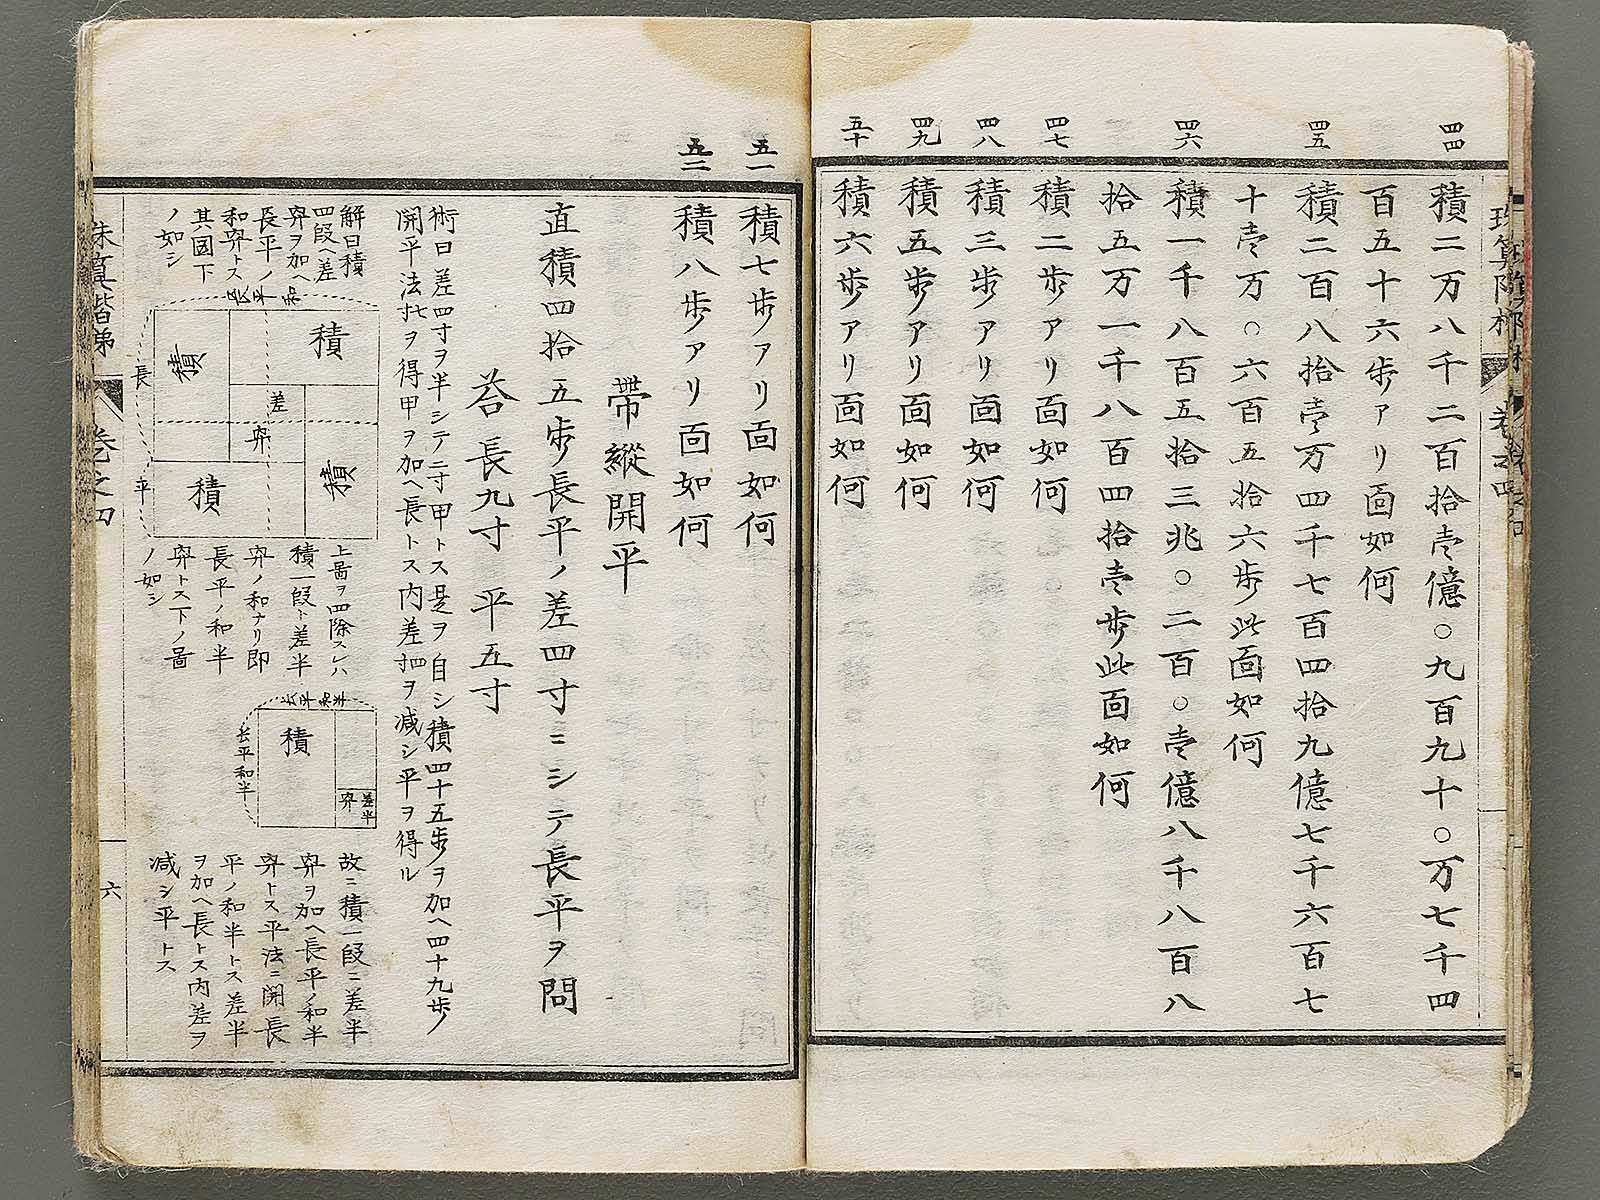 四四
積二万八千二百拾壱億○九百九十○万七千四
百五十六歩アリ面如何
四五
積二百八拾壱万四千七百四拾九億七千六百七
十壱万○六百五拾六歩此面如何
四六
積一千八百五拾三兆○二百○壱億八千八百八
拾五万一千八百四拾壱歩此面如何
四七
積二歩アリ面如何
四八
積三歩アリ面如何
四九
積五歩アリ面如何
五十
積六歩アリ面如何
五一
積七歩アリ面如何
五二
積八歩アリ面如何
帶縱開平
直積四拾五歩長平ノ差四寸ニシテ長平ヲ問
答 長九寸 平五寸
術曰差四寸ヲ半シテ二寸甲トス是ヲ自シ積四十五歩ヲ加ヘ四十九歩ノ
開平法七寸ヲ得甲ヲ加ヘ長トス内差四寸ヲ减シ平ヲ得ル
解曰積
四段ヘ差
冪ヲ加ヘ
長平ノ
和冪トス
其圖下
ノ如シ
長平和
積
積
差
冪
積
積
長
平
上圖ヲ四除スレハ
積一段ト差半
冪ノ和ナリ即
長平ノ和半
冪トス下ノ圖
ノ如シ
長平和半
積
長平和半
差半
冪
故ニ積一段ニ差半
冪ヲ加ヘ長平ノ和半
冪トス平法ニ開長
平ノ和半トス差半
ヲ加ヘ長トス内差ヲ
减シ平トス
珠算階梯
卷之四
六